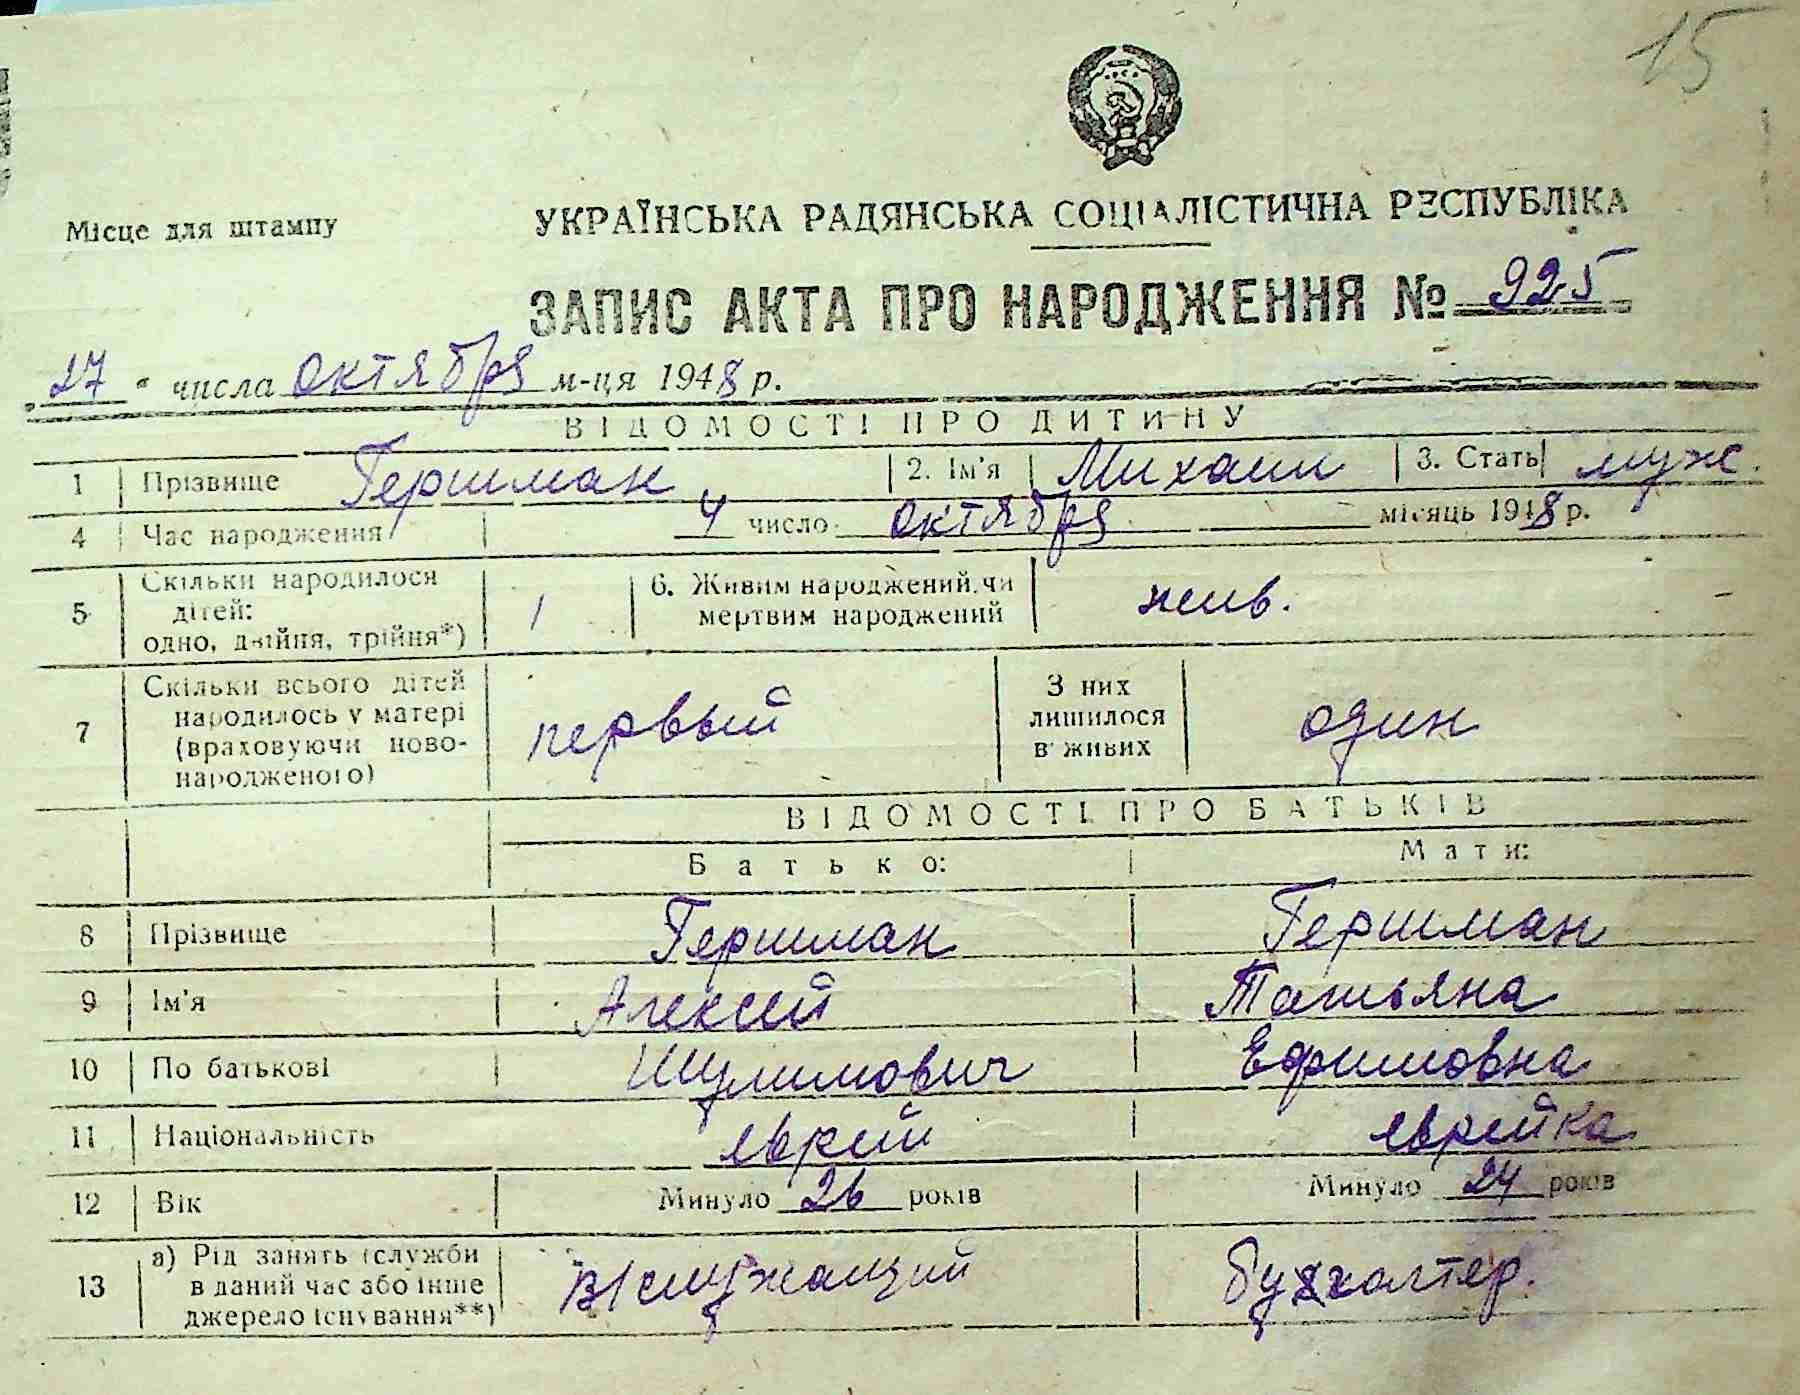 15
Місце для штампу
УКРАЇНСЬКА РАДЯНСЬКА СОЦІАЛІСТИЧНА РЕСПУБЛІКА
ЗАПИС АКТА ПРО НАРОДЖЕННЯ № 925
27 числа октября м-ця 1948 р.
ВІДОМОСТІ ПРО ДИТИНУ
1 Прізвище Гершман 2. Ім'я Михаил 3. Стать муж.
4 Час народження 4 число октября місяць 1948 р.
5 Скільки народилося дітей: одно, двійня, трійня*) 1 6. Живим народжений чи мертвим народжений жив.
7 Скільки всього дітей народилось у матері (враховуючи новонародженого) первый З них лишилося в живих один
ВІДОМОСТІ ПРО БАТЬКІВ
Батько: Мати:
8 Прізвище Гершман Гершман
9 Ім'я Алексей Татьяна
10 По батькові Шулимович Ефимовна
11 Національність еврей еврейка
12 Вік Минуло 26 років Минуло 24 років
13 а) Рід занять (служби в даний час або інше джерело існування**) в/служащий бухгалтер.